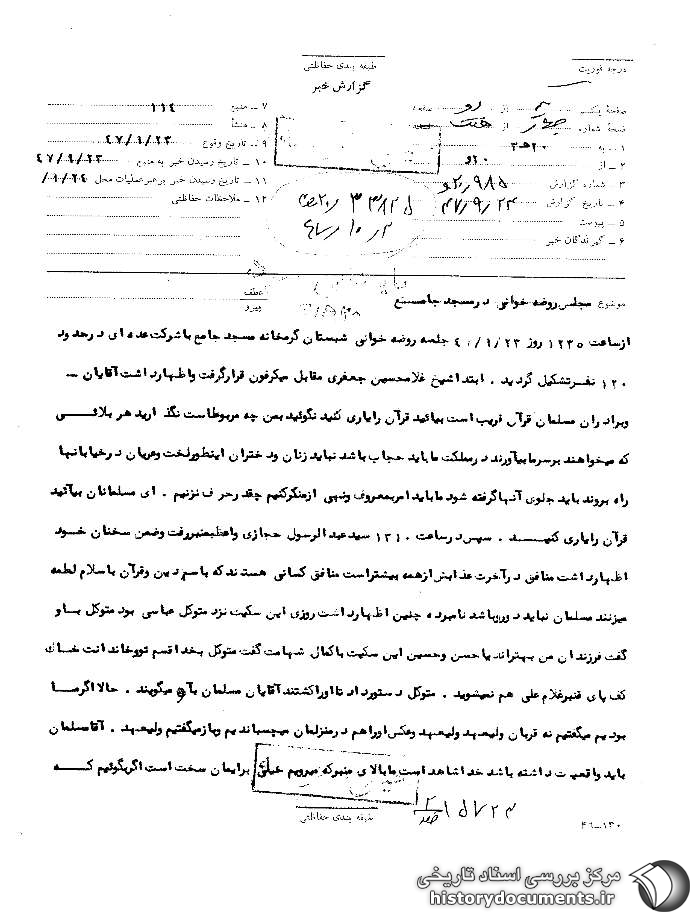 درجه فوریت
طبقه بندی حفاظتی
گزارش خبر
صفحه یک از دو صفحه
نسخه شماره چهار از هفت
۱ ـ به ۲۰ هـ ۳
۲ ـ از
۳ ـ شماره گزارش
۴ ـ تاریخ گزارش ۴۷/۹/۲۴
۵ ـ پیوست
۶ ـ گیرندگان خبر
۷ ـ منبع ۱۱۴
۸ ـ منشأ
۹ ـ تاریخ وقوع ۴۷/۹/۲۳
۱۰ ـ تاریخ رسیدن خبر به منبع ۴۷/۹/۲۳
۱۱ ـ تاریخ رسیدن خبر برهبر عملیات محل /۹/۲۴
۱۲ ـ ملاحظات حفاظتی
۳۳۸۲۵
عطف
پیرو
موضوع مجلس روضه خوانی در مسجد جامع
از ساعت ۱۲۳۵ روز ۴۰/۹/۲۳ جلسه روضه خوانی شبستان گرمخانه مسجد جامع با شرکت عده ای در حدود
۱۲۰ نفر تشکیل گردید . ابتدا شیخ غلامحسین جعفری مقابل میکرفون قرار گرفت و اظهار داشت آقایان ــ
وبرادران مسلمان قرآن غریب است بیائید قرآن را یاری کنید نگوئید بمن چه مربوط است نگذارید هر بلائی
که میخواهند بر سر ما بیآورند در مملکت ما باید حجاب باشد نباید زنان و دختران اینطور لخت و عریان در خیابانها
راه بروند باید جلوی آنها گرفته شود ما باید امر بمعروف ونهی از منکر کنیم چقدر حرف نزنیم . ای مسلمانان بیآئید
قرآن را یاری کنید . سپس در ساعت ۱۳۱۰ سید عبدالرسول حجازی واعظ بمنبر رفت وضمن سخنان خود
اظهار داشت منافق در آخرت عذابش از همه بیشتر است منافق کسانی هستند که باسم دین وقرآن باسلام لطمه
میزنند مسلمان نباید دورو باشد نامبرده چنین اظهار داشت روزی ابن سکیت نزد متوکل عباسی بود متوکل باو
گفت فرزندان من بهترند یا حسن وحسین ابن سکیت با کمال شهامت گفت متوکل بخدا قسم تو وخاندانت خاک
کف پای قنبر غلام علی هم نمیشوید . متوکل دستور داد تا او را کشتند آقایان مسلمان بآن میگویند . حالا اگر ما
بودیم میگفتیم نه قربان ولیعهد ولیعهد وعکس او را هم در منزلمان میچسباندیم وباز میگفتیم ولیعهد . آقا مسلمان
باید واقعیت داشته باشد خدا شاهد است ما بالای منبر که میرویم خیلی برایمان سخت است اگر بگوئیم که
طبقه بندی حفاظتی
۱۵۷۲۴
۴۶ـ۱۳۰
مرکز بررسی اسناد تاریخی
historydocuments.ir